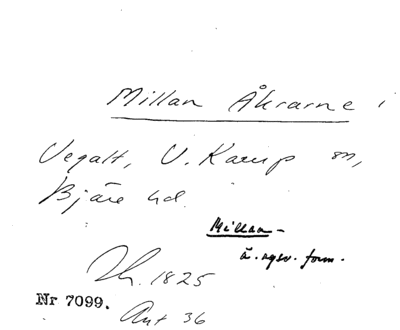 Millan Åkrarne i
Vegalt, V. Karup sn,
Bjäre hd.
Millan -
ä. nysv. form.
1825
Nr 7099.
Akt 36